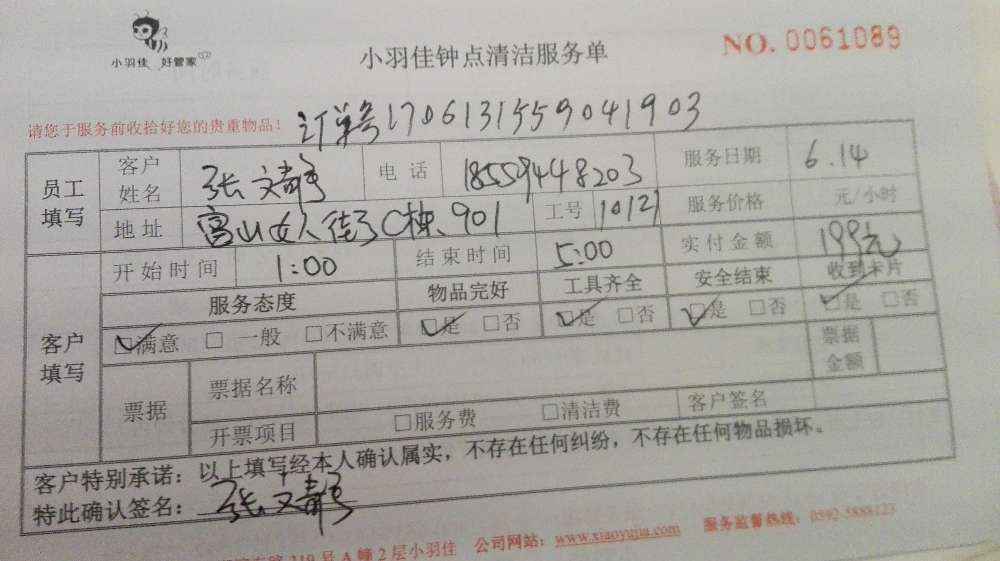 小羽佳 好管家
小羽佳钟点清洁服务单
NO. 0061089
请您于服务前收拾好您的贵重物品!
订单号1706131559041903
员工填写 客户姓名 张文静 电话 18559448203 服务日期 6.14
地址 富山女人街3C栋901 工号 10121 服务价格 元/小时
客户填写 开始时间 1:00 结束时间 5:00 实付金额 199元
服务态度 物品完好 工具齐全 安全结束 收到卡片
☑满意 □一般 □不满意 ☑是 □否 ☑是 □否 ☑是 □否 ☑是 □否
票据 票据名称 票据金额
开票项目 □服务费 □清洁费 客户签名
客户特别承诺:以上填写经本人确认属实,不存在任何纠纷,不存在任何物品损坏。
特此确认签名:张文静
210号A幢2层小羽佳 公司网站:www.xiaoyujia.com 服务监督热线:0592-5888123